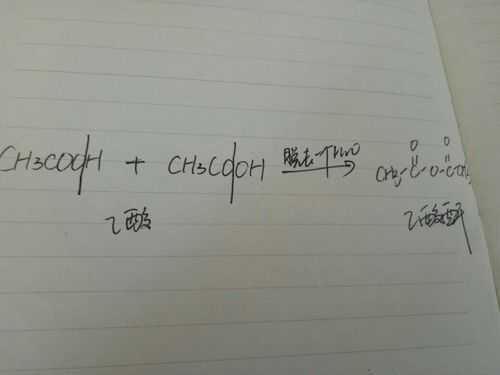 CH3COOH + CH3COOH 脱去一个H2O → CH3-C(=O)-O-C(=O)-CH3
乙酸 乙酸酐